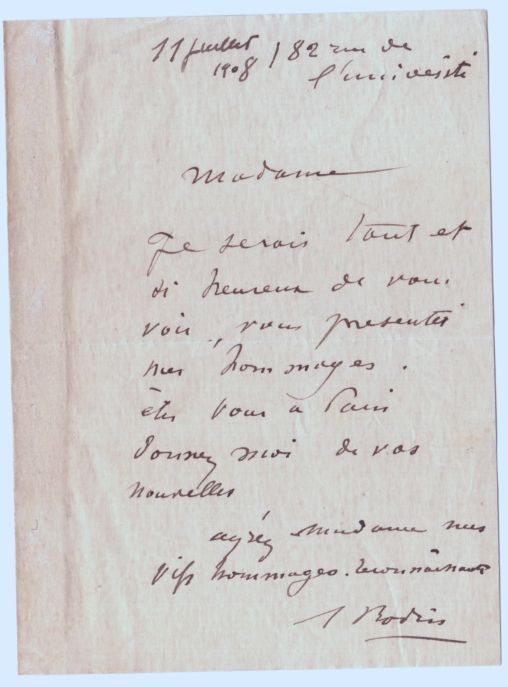 11 Juillet / 82 rue de
1908 l'université
Madame
Je serais tant et
si heureux de vous
voir, vous presenter
mes hommages.
êtes vous à Paris
donnez moi de vos
nouvelles
agréz Madame mes
vifs hommages. reconnaissants
A Rodin